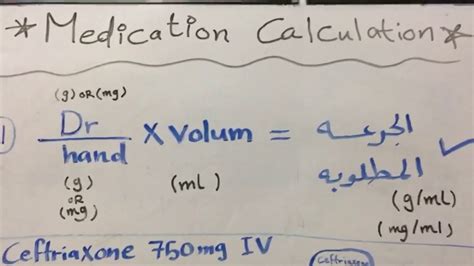 * Medication Calculation *
(g) OR (mg)
1 Dr X Volum = الجرعه
hand المطلوبه
(g) (ml) (g/ml)
OR
(mg) (mg/ml)
Ceftriaxone 750mg IV Ceftriaxone